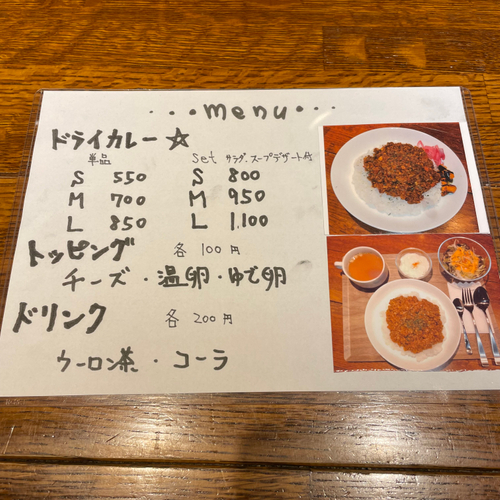 ・・・menu・・・
ドライカレー☆
単品 Set サラダ.スープデザート付
S 550 S 800
M 700 M 950
L 850 L 1.100
トッピング 各 100円
チーズ・温卵・ゆで卵
ドリンク 各 200円
ウーロン茶・コーラ